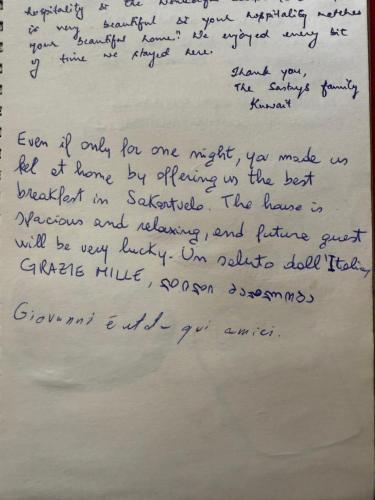 hospitality & the wonderful
is very beautiful & your hospitality matches
your beautiful home." We enjoyed every bit
of time we stayed here.
Thank you,
The Sastrys family
Kuwait
Even if only for one night, you made us
feel at home by offering us the best
breakfast in Sakartvelo. The house is
spacious and relaxing, and future guest
will be very lucky. Un saluto dall'Italia,
GRAZIE MILLE, დიდი მადლობა
Giovanni è qui amici.